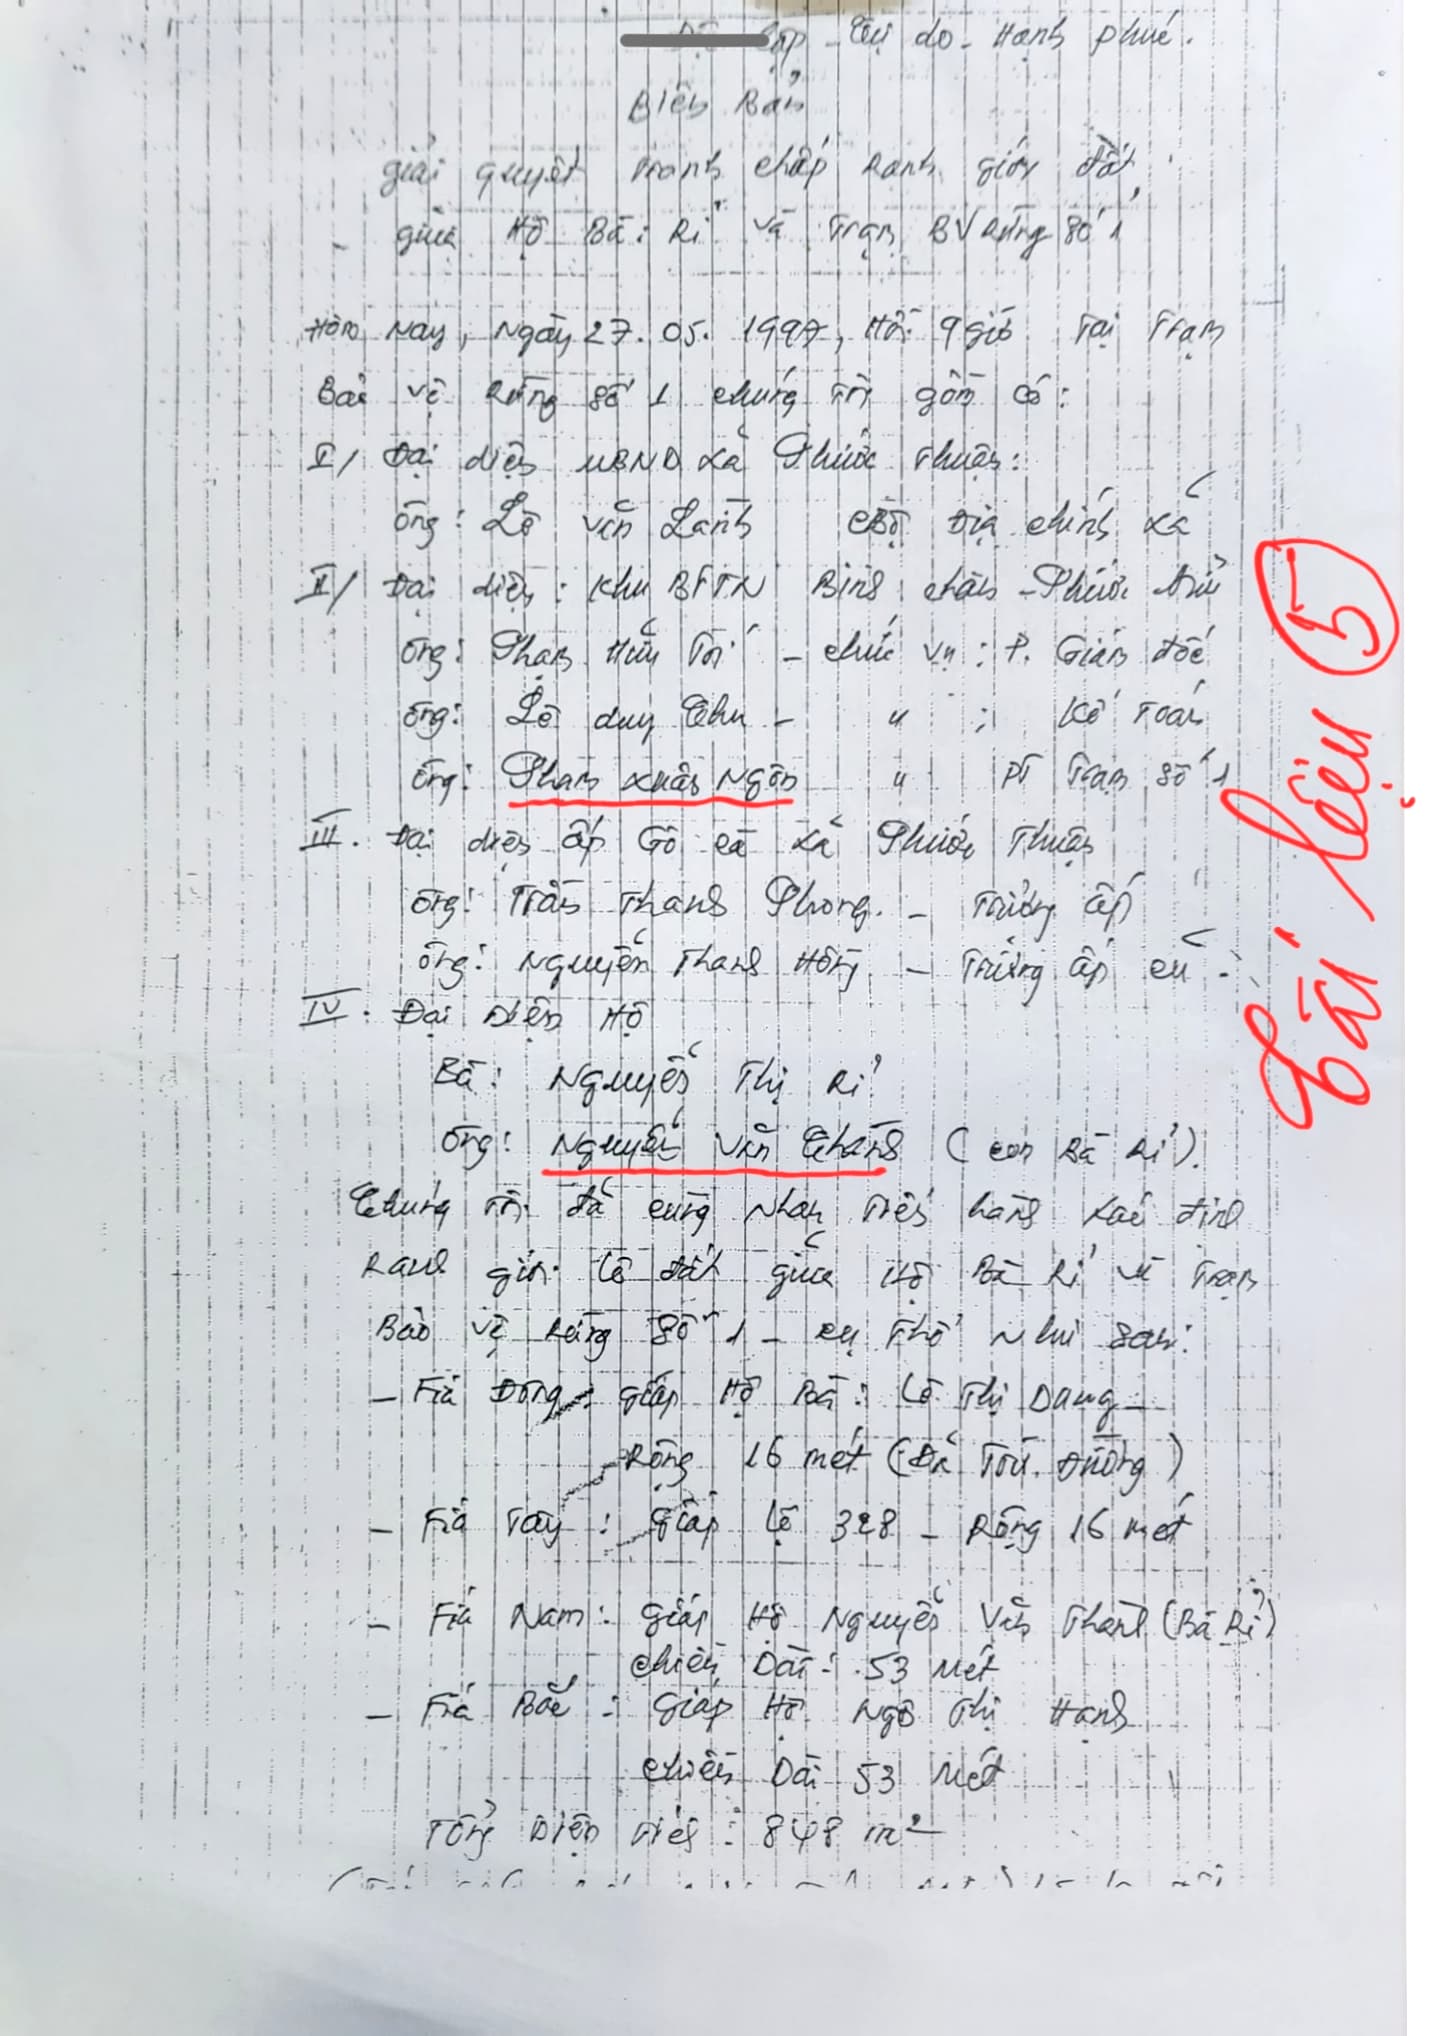 Độc lập - Tự do - Hạnh phúc.
Biên Bản
giải quyết tranh chấp ranh giới đất
giữa Hộ Bà: Rỉ và Trạm BV Rừng số 1
Hôm nay, ngày 27. 05. 1997, Hồi 9 giờ Tại Trạm
Bảo vệ Rừng số 1 chúng Tôi gồm có:
I/ Đại diện UBND xã Phước Thuận:
ông: Lê văn Lành CBộ Địa chính xã
II/ Đại diện: Khu BTTN Bình châu - Phước Bửu
ông: Phạm Hữu Tới - chức vụ: P. Giám đốc
ông: Lê duy Chu - " ; Kế toán
ông: Phạm Xuân Ngôn " PT Trạm số 1
III. Đại diện ấp Gò cà xã Phước Thuận
ông: Trần Thanh Phong. - Trưởng ấp
ông: Nguyễn Thanh Hồng - Trưởng ấp cũ -
IV. Đại Diện Hộ
Bà: Nguyễn Thị Rỉ
ông: Nguyễn Văn Thành (con Bà Rỉ).
Chúng Tôi đã cùng nhau Tiến hành xác định
Ranh giới lô đất giữa Hộ Bà Rỉ và Trạm
Bảo vệ rừng số 1 - cụ thể như sau:
- Fía Đông: giáp Hộ Bà: Lê Thị Dung -
Rộng 16 mét (Đã Trừ Đường)
- Fiá Tây: Giáp lộ 328 - Rộng 16 mét
- Fiá Nam: Giáp Hộ Nguyễn Văn Thành (Bà Rỉ)
chiều Dài: 53 mét
- Fiá Bắc: Giáp Hộ Ngô Thị Hạnh
chiều Dài 53 mét
Tổng Diện tích: 848 m²
Tài liệu 5